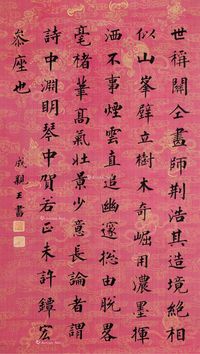 世稱關仝畫師荆浩其造境絶相
似山峯壁立樹木奇崛用濃墨揮
洒不事煙雲直追幽邃總由脱畧
毫楮葷高氣壯景少意長論者謂
詩中淵明琴中賀若正未許鐔宏
叅座也
成親王書